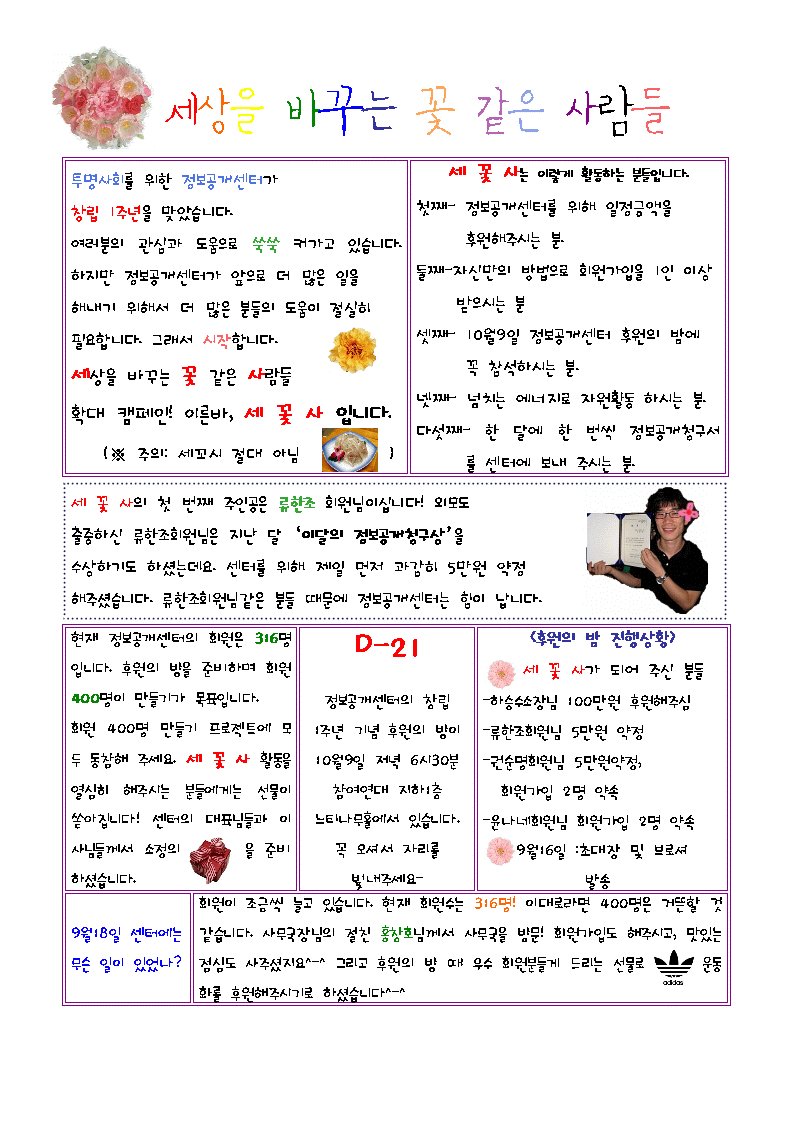 세상을 바꾸는 꽃 같은 사람들
투명사회를 위한 정보공개센터가
창립 1주년을 맞았습니다.
여러분의 관심과 도움으로 쑥쑥 커가고 있습니다.
하지만 정보공개센터가 앞으로 더 많은 일을
해내기 위해서 더 많은 분들의 도움이 절실히
필요합니다. 그래서 시작합니다.
세상을 바꾸는 꽃 같은 사람들
확대 캠페인! 이른바, 세 꽃 사 입니다.
(※ 주의: 세꼬시 절대 아님 )
세 꽃 사는 이렇게 활동하는 분들입니다.
첫째- 정보공개센터를 위해 일정금액을
후원해주시는 분.
둘째-자신만의 방법으로 회원가입을 1인 이상
받으시는 분
셋째- 10월9일 정보공개센터 후원의 밤에
꼭 참석하시는 분.
넷째- 넘치는 에너지로 자원활동 하시는 분.
다섯째- 한 달에 한 번씩 정보공개청구서
를 센터에 보내 주시는 분.
세 꽃 사의 첫 번째 주인공은 류한조 회원님이십니다! 외모도
출중하신 류한조회원님은 지난 달 ‘이달의 정보공개청구상’을
수상하기도 하셨는데요. 센터를 위해 제일 먼저 과감히 5만원 약정
해주셨습니다. 류한조회원님같은 분들 때문에 정보공개센터는 힘이 납니다.
현재 정보공개센터의 회원은 316명
입니다. 후원의 밤을 준비하며 회원
400명이 만들기가 목표입니다.
회원 400명 만들기 프로젝트에 모
두 동참해 주세요. 세 꽃 사 활동을
열심히 해주시는 분들에게는 선물이
쏟아집니다! 센터의 대표님들과 이
사님들께서 소정의 을 준비
하셨습니다.
D-21
정보공개센터의 창립
1주년 기념 후원의 밤이
10월9일 저녁 6시30분
참여연대 지하1층
느티나무홀에서 있습니다.
꼭 오셔서 자리를
빛내주세요~
<후원의 밤 진행상황>
세 꽃 사가 되어 주신 분들
-하승수소장님 100만원 후원해주심
-류한조회원님 5만원 약정
-권순명회원님 5만원약정,
회원가입 2명 약속
-윤나네회원님 회원가입 2명 약속
9월16일 :초대장 및 브로셔
발송
9월18일 센터에는
무슨 일이 있었나?
회원이 조금씩 늘고 있습니다. 현재 회원수는 316명! 이대로라면 400명은 거뜬할 것
같습니다. 사무국장님의 절친 홍창호님께서 사무국을 방문! 회원가입도 해주시고, 맛있는
점심도 사주셨지요^-^ 그리고 후원의 밤 때 우수 회원분들게 드리는 선물로 adidas 운동
화를 후원해주시기로 하셨습니다^-^